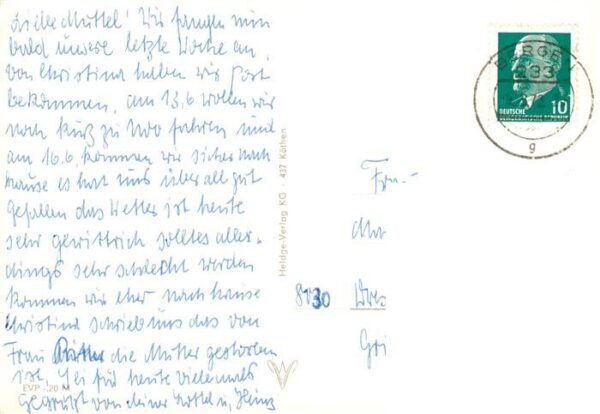 Liebe Muttel! Wir fangen nun
bald unsere letzte Woche an,
von Christina haben wir Post
bekommen, am 13.6 wollen wir
noch kurz zu fahren und
am 16.6. kommen wir sicher nach
hause es hat uns überall gut
gefallen das Wetter ist heute
sehr gewittrich solltes aller-
dings sehr schlecht werden
kommen wir eher nach hause
Christina schrieb uns das von
Frau die Mutter gestorben
ist. Sei für heute vielemals
Gegrüßt von deiner u. Heinz
EVP -,20 M
Heldge-Verlag KG · 437 Köthen
BERGEN
233
g
10
DEUTSCHE
DEMOKRATISCHE REPUBLIK
Frau
8130